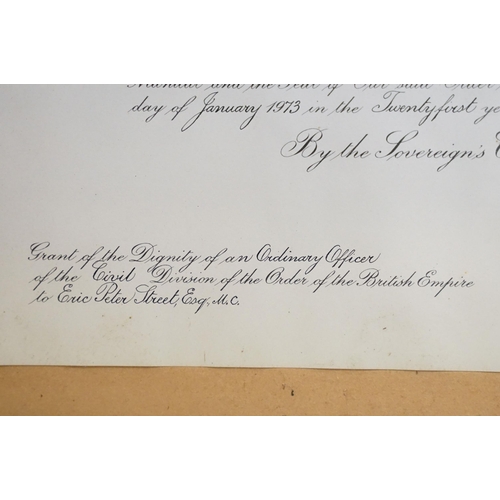 and the Year of Our said Order
day of January 1973 in the Twentyfirst ye
By the Sovereign's
Grant of the Dignity of an Ordinary Officer
of the Civil Division of the Order of the British Empire
to Eric Peter Street, Esq., M.C.